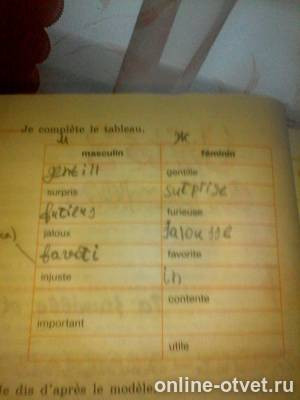 Je complète le tableau.
м ж
masculin féminin
gentill gentille
surpris surprise
furieus furieuse
jaloux Jalousse
favoti favorite
injuste in
contente
important
utile
Je dis d'après le modèle.
online-otvet.ru